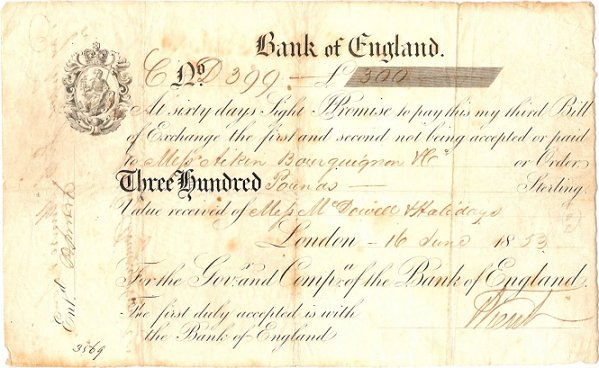 Bank of England.
C No. D 399 — £ 300
At sixty days Sight I Promise to pay this my third Bill
of Exchange the first and second not being accepted or paid
to Messrs Aikin Bourguignon & Co or Order
Three Hundred Pounds — Sterling
Value received of Messrs McDowell & Halidays
London – 16 June 1853
For the Govr. and Compa. of the Bank of England.
The first duly accepted is with
the Bank of England
Entd.
3569